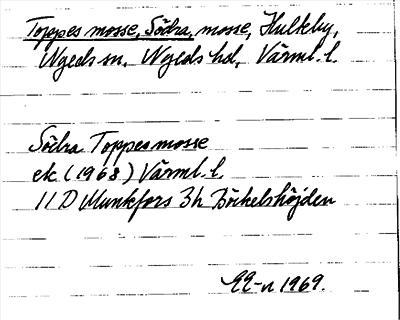 Toppes mosse, Södra, mosse, Hulkby,
Nyeds sn, Nyeds hd, Värml. l.
Södra Toppesmosse
ek (1968) Värml. l.
11 D Munkfors 3h Böckelshöjden
1969.